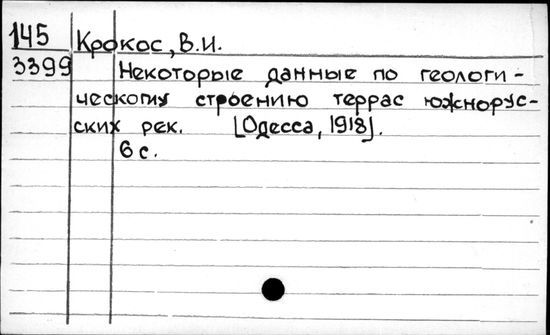 145 Крокос, В.И.
3399 Некоторые данные по геологи-
ческому строению террас южнорус-
ских рек. [Одесса, 1918].
6 с.